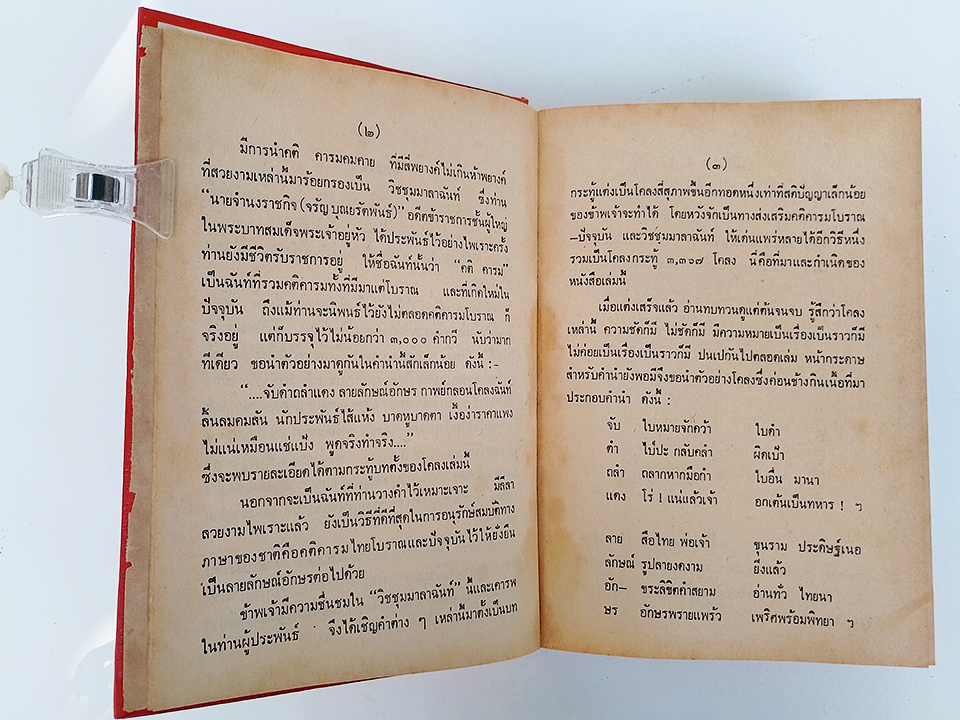 (๒)
มีการนำคติ คารมคมคาย ที่มีสี่พยางค์ไม่เกินห้าพยางค์
ที่สวยงามเหล่านี้มาร้อยกรองเป็น วิชชุมมาลาฉันท์ ซึ่งท่าน
“นายจำนงราชกิจ (จรัญ บุณยรัตพันธ์)” อดีตข้าราชการชั้นผู้ใหญ่
ในพระบาทสมเด็จพระเจ้าอยู่หัว ได้ประพันธ์ไว้อย่างไพเราะครั้ง
ท่านยังมีชีวิตรับราชการอยู่ ให้ชื่อฉันท์นั้นว่า “คติ คารม”
เป็นฉันท์ที่รวมคติคารมทั้งที่มีมาแต่โบราณ และที่เกิดใหม่ใน
ปัจจุบัน ถึงแม้ท่านจะนิพนธ์ไว้ยังไม่ตลอดคติคารมโบราณ ก็
จริงอยู่ แต่ก็บรรจุไว้ไม่น้อยกว่า ๓,๐๐๐ คำกวี นับว่ามาก
ทีเดียว ขอนำตัวอย่างมาดูกันในคำนำนี้สักเล็กน้อย ดังนี้ :-
“....จับดำถลำแดง ลายลักษณ์อักษร กาพย์กลอนโคลงฉันท์
ลิ้นลมคมสัน นักประพันธ์ไส้แห้ง บาดหูบาดตา เงื้อง่าราคาแพง
ไม่แน่เหมือนแช่แป้ง พูดจริงทำจริง....”
ซึ่งจะพบรายละเอียดได้ตามกระทู้บทตั้งของโคลงเล่มนี้
นอกจากจะเป็นฉันท์ที่ท่านวางคำไว้เหมาะเจาะ มีลีลา
สวยงามไพเราะแล้ว ยังเป็นวิธีที่ดีที่สุดในการอนุรักษ์สมบัติทาง
ภาษาของชาติคือคติคารมไทยโบราณและปัจจุบันไว้ให้ยั่งยืน
เป็นลายลักษณ์อักษรต่อไปด้วย
ข้าพเจ้ามีความชื่นชมใน “วิชชุมมาลาฉันท์” นี้และเคารพ
ในท่านผู้ประพันธ์ จึงได้เชิญคำต่าง ๆ เหล่านี้มาตั้งเป็นบท
(๓)
กระทู้แต่งเป็นโคลงสี่สุภาพขึ้นอีกทอดหนึ่งเท่าที่สติปัญญาเล็กน้อย
ของข้าพเจ้าจะทำได้ โดยหวังจักเป็นทางส่งเสริมคติคารมโบราณ
–ปัจจุบัน และวิชชุมมาลาฉันท์ ให้เด่นแพร่หลายได้อีกวิธีหนึ่ง
รวมเป็นโคลงกระทู้ ๓,๓๑๗ โคลง นี่คือที่มาและกำเนิดของ
หนังสือเล่มนี้
เมื่อแต่งเสร็จแล้ว อ่านทบทวนดูแต่ต้นจนจบ รู้สึกว่าโคลง
เหล่านี้ ความชัดก็มี ไม่ชัดก็มี มีความหมายเป็นเรื่องเป็นราวก็มี
ไม่ค่อยเป็นเรื่องเป็นราวก็มี ปนเปกันไปตลอดเล่ม หน้ากระดาษ
สำหรับคำนำยังพอมีจึงขอนำตัวอย่างโคลงซึ่งค่อนข้างกินเนื้อที่มา
ประกอบคำนำ ดังนี้ :
จับ ใบหมายจักคว้า ใบดำ
ดำ ไป่ปะ กลับคลำ ผิดเบ้า
ถลำ ถลากหากมือกำ ใบอื่น มานา
แดง โร่ ! แน่แล้วเจ้า อกเต้นเป็นทหาร ! ฯ
ลาย สือไทย พ่อเจ้า ขุนราม ประดิษฐ์เนอ
ลักษณ์ รูปลายงดงาม ยิ่งแล้ว
อัก– ขระลิขิตคำสยาม อ่านทั่ว ไทยนา
ษร อักษรพรายแพร้ว เพริศพร้อมพิทยา ฯ